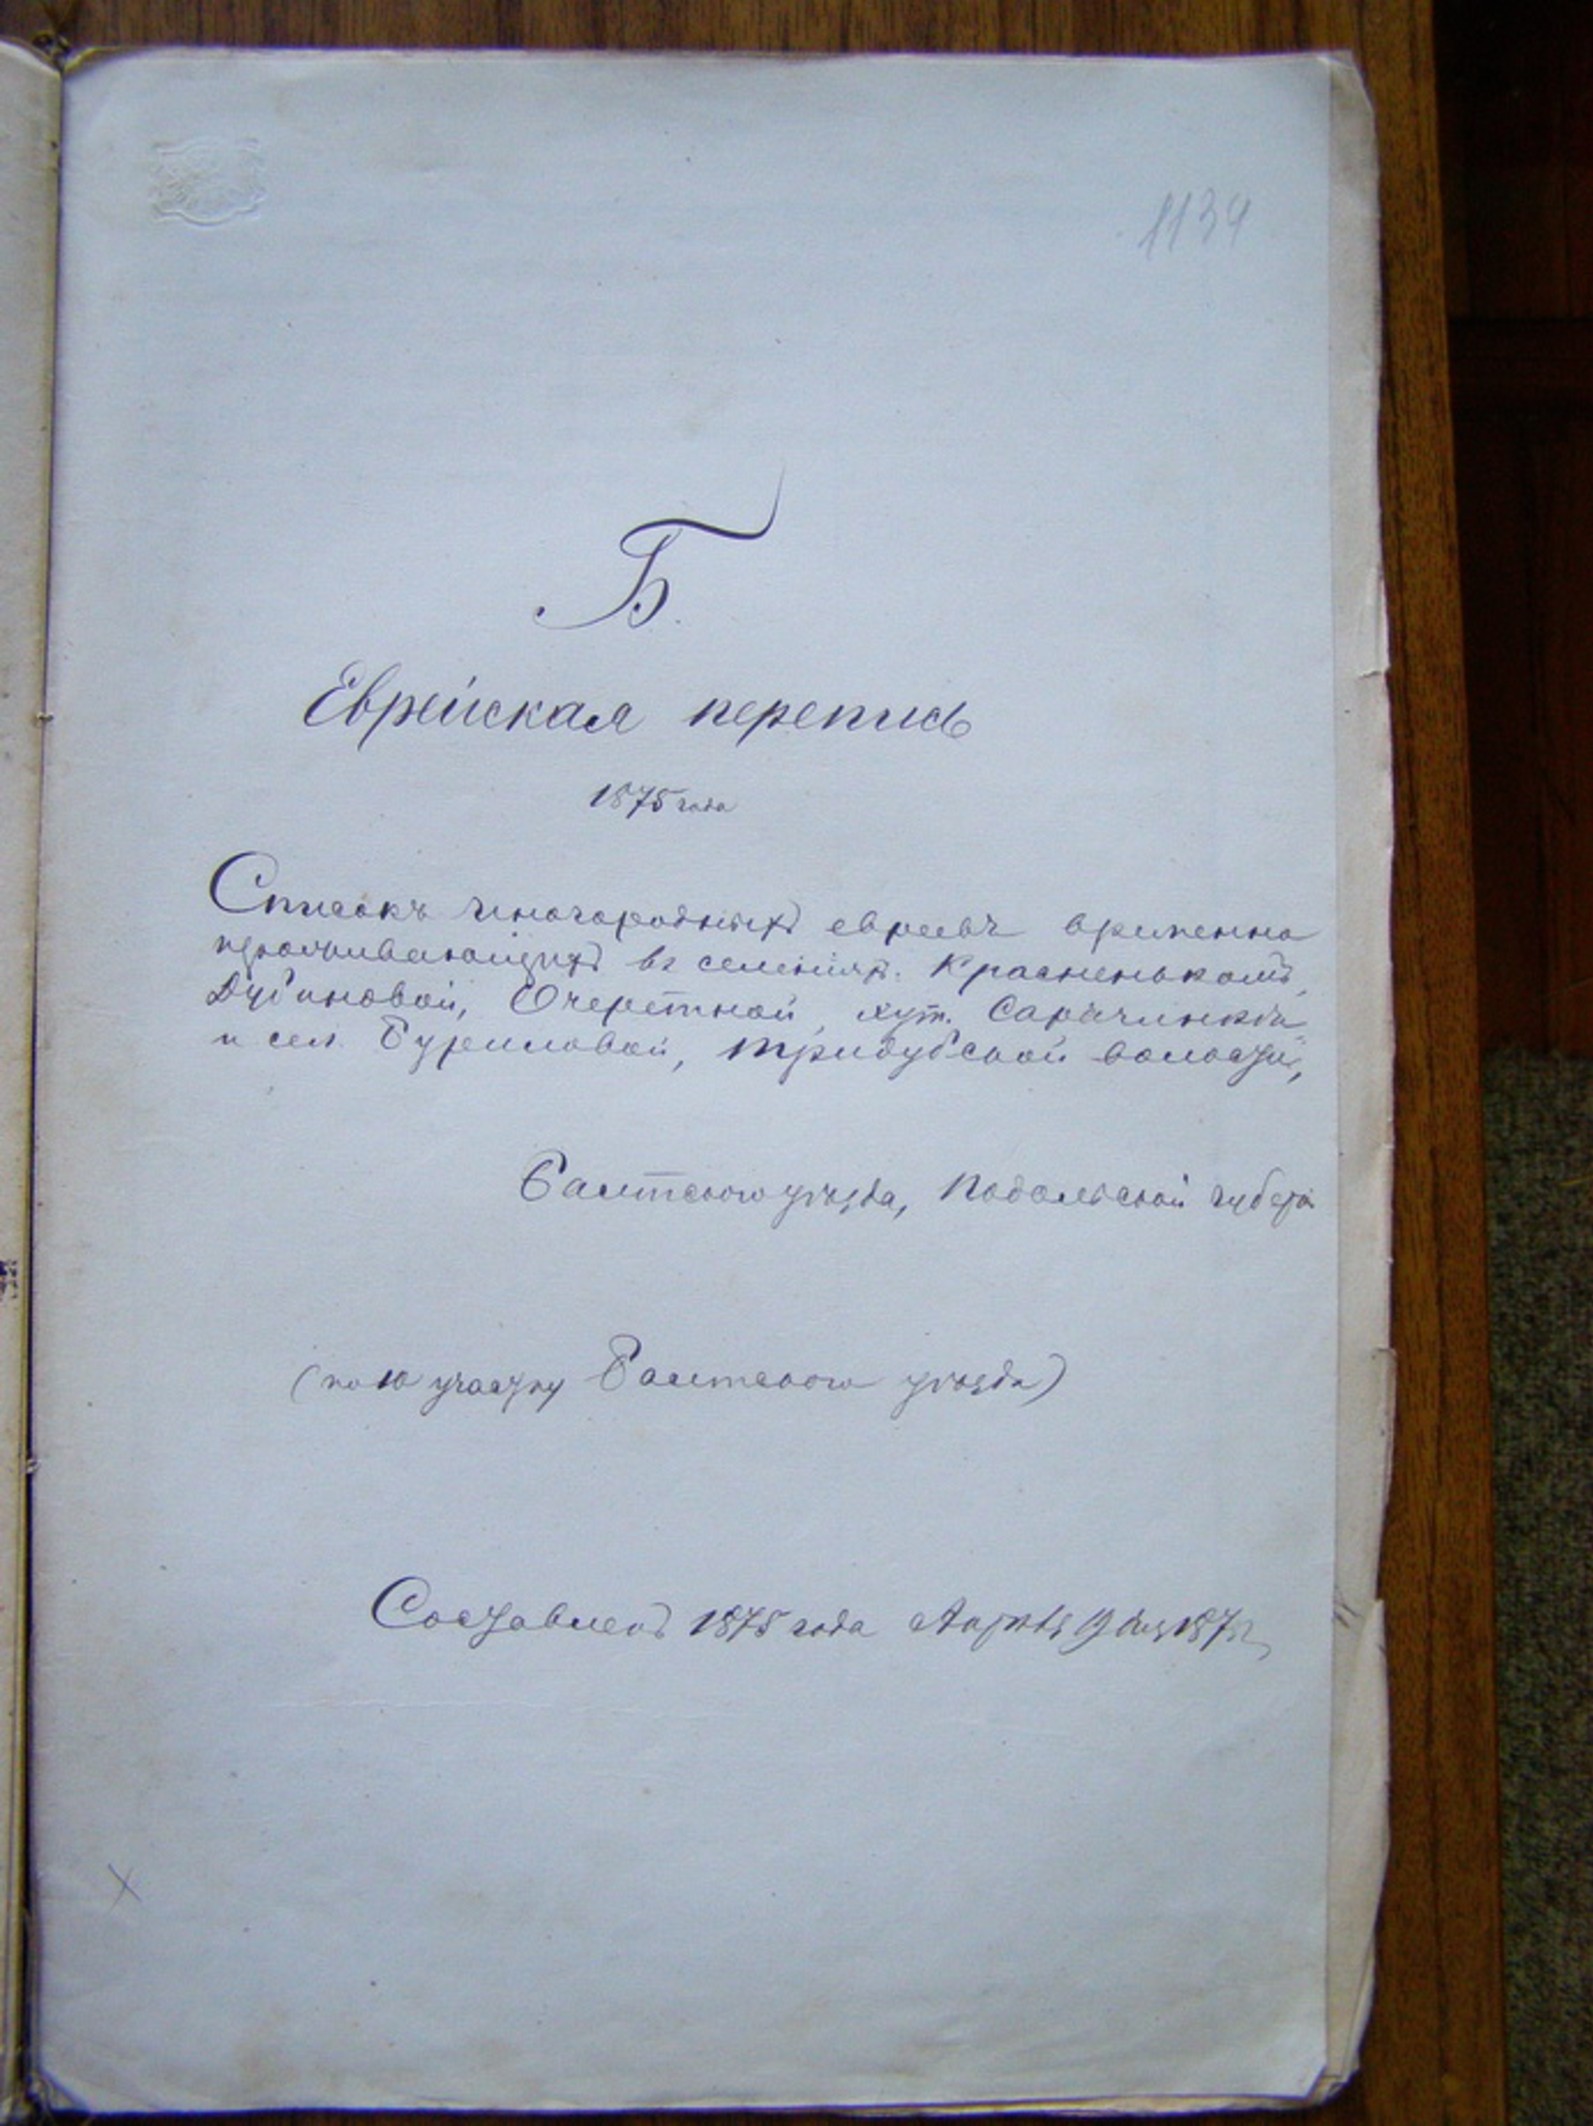 1134
Б.
Еврейская перепись
1875 года
Списокъ иногородныхъ евреевъ временно
проживающихъ въ селеніях. Красненькомъ,
Дубиновой, Очеретной, хут. Сарачинкѣ
и сел. Буриловой, Тридубской волости,
Балтского уѣзда, Подольской губерн.
(по 10 участку Балтского уѣзда)
Составленъ 1875 года Апрѣля 9 дня 187